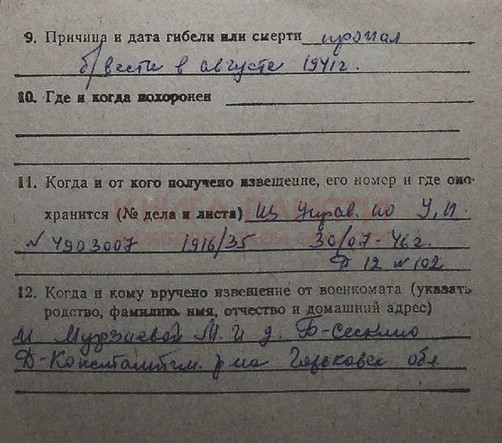 9. Причина и дата гибели или смерти пропал
б/вести в августе 1941г.
10. Где и когда похоронен
11. Когда и от кого получено извещение, его номер и где оно
хранится (№ дела и листа) из управ. по У, П.
№ 4903007 1916/35 30/07-46г.
12 № 102
12. Когда и кому вручено извещение от военкомата (указать
родство, фамилию имя, отчество и домашний адрес)
м Мурзаевой М. И д. Б-Сескино
Д-Константин. р-на Горьковск обл